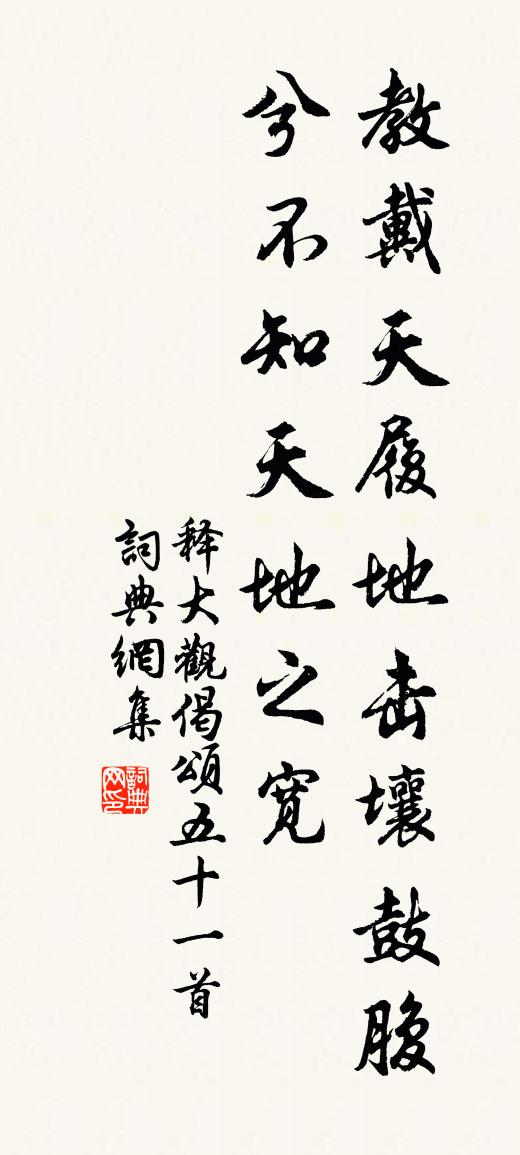 教戴天履地击壤鼓腹
兮不知天地之宽
释大觀偈頌五十一首
詞典網集
詞典网印